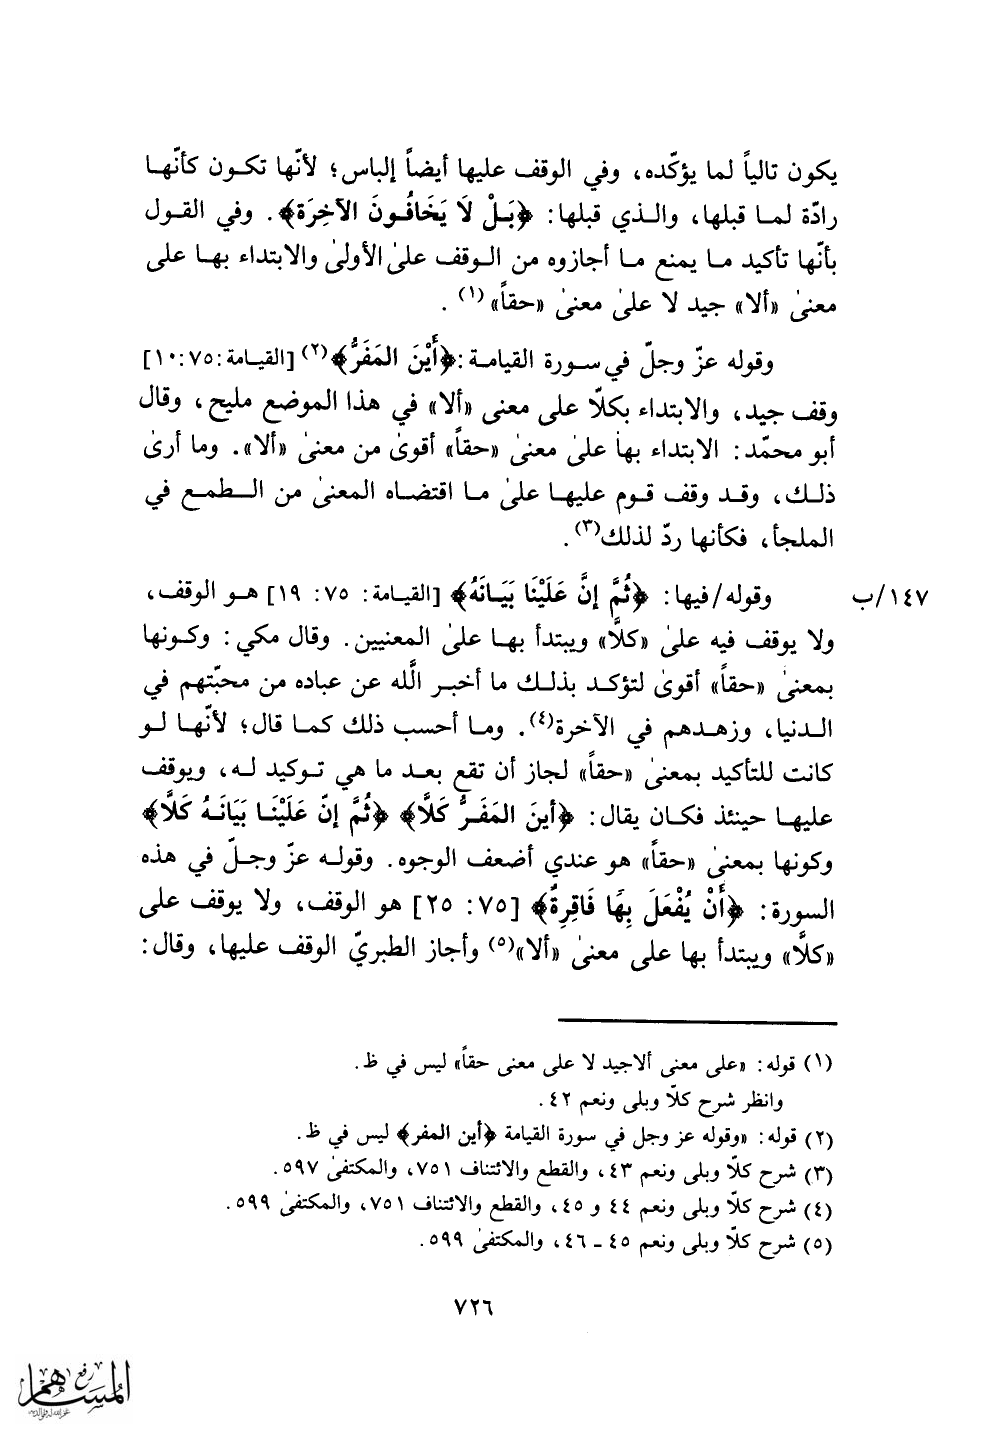 يكون تالياً لما يؤكّده، وفي الوقف عليها أيضاً إلباس؛ لأنّها تكون كأنّها
رادّة لما قبلها، والذي قبلها: ﴿بَلْ لَا يَخَافُونَ الآخِرَة﴾. وفي القول
بأنّها تأكيد ما يمنع ما أجازوه من الوقف علىٰ الأولىٰ والابتداء بها على
معنىٰ «ألا» جيد لا علىٰ معنىٰ «حقاً»(١).
وقوله عزّ وجلّ في سورة القيامة: ﴿أَيْنَ المَفَرُّ﴾(٢) [القيامة: ٧٥: ١٠]
وقف جيد، والابتداء بكلّا على معنى «ألا» في هذا الموضع مليح، وقال
أبو محمّد: الابتداء بها علىٰ معنىٰ «حقاً» أقوىٰ من معنىٰ «ألا». وما أرىٰ
ذلك، وقد وقف قوم عليها علىٰ ما اقتضاه المعنىٰ من الطمع في
الملجأ، فكأنها ردّ لذلك(٣).
١٤٧/ب وقوله/فيها: ﴿ثُمَّ إنَّ عَلَيْنَا بَيَانَهُ﴾ [القيامة: ٧٥: ١٩] هو الوقف،
ولا يوقف فيه علىٰ «كلَّا» ويبتدأ بها علىٰ المعنيين. وقال مكي: وكونها
بمعنىٰ «حقاً» أقوىٰ لتؤكد بذلك ما أخبر الَّله عن عباده من محبّتهم في
الدنيا، وزهدهم في الآخرة(٤). وما أحسب ذلك كما قال؛ لأنّها لو
كانت للتأكيد بمعنىٰ «حقاً» لجاز أن تقع بعد ما هي توكيد له، ويوقف
عليها حينئذ فكان يقال: ﴿أينَ المَفَرُّ كَلَّا﴾ ﴿ثُمَّ إنّ عَلَيْنَا بَيَانَهُ كَلَّا﴾
وكونها بمعنىٰ «حقاً» هو عندي أضعف الوجوه. وقوله عزّ وجلّ في هذه
السورة: ﴿أَنْ يُفْعَلَ بِهَا فَاقِرةٌ﴾ [٧٥: ٢٥] هو الوقف، ولا يوقف على
«كلَّا» ويبتدأ بها على معنىٰ «ألا»(٥) وأجاز الطبريّ الوقف عليها، وقال:
(١) قوله: «على معنى ألاجيد لا على معنى حقاً» ليس في ظ.
وانظر شرح كلّا وبلى ونعم ٤٢.
(٢) قوله: «وقوله عز وجل في سورة القيامة ﴿أين المفر﴾ ليس في ظ.
(٣) شرح كلّا وبلى ونعم ٤٣، والقطع والائتناف ٧٥١، والمكتفىٰ ٥٩٧.
(٤) شرح كلّا وبلى ونعم ٤٤ و ٤٥، والقطع والائتناف ٧٥١، والمكتفىٰ ٥٩٩.
(٥) شرح كلّا وبلى ونعم ٤٥ ـ ٤٦، والمكتفىٰ ٥٩٩.
٧٢٦